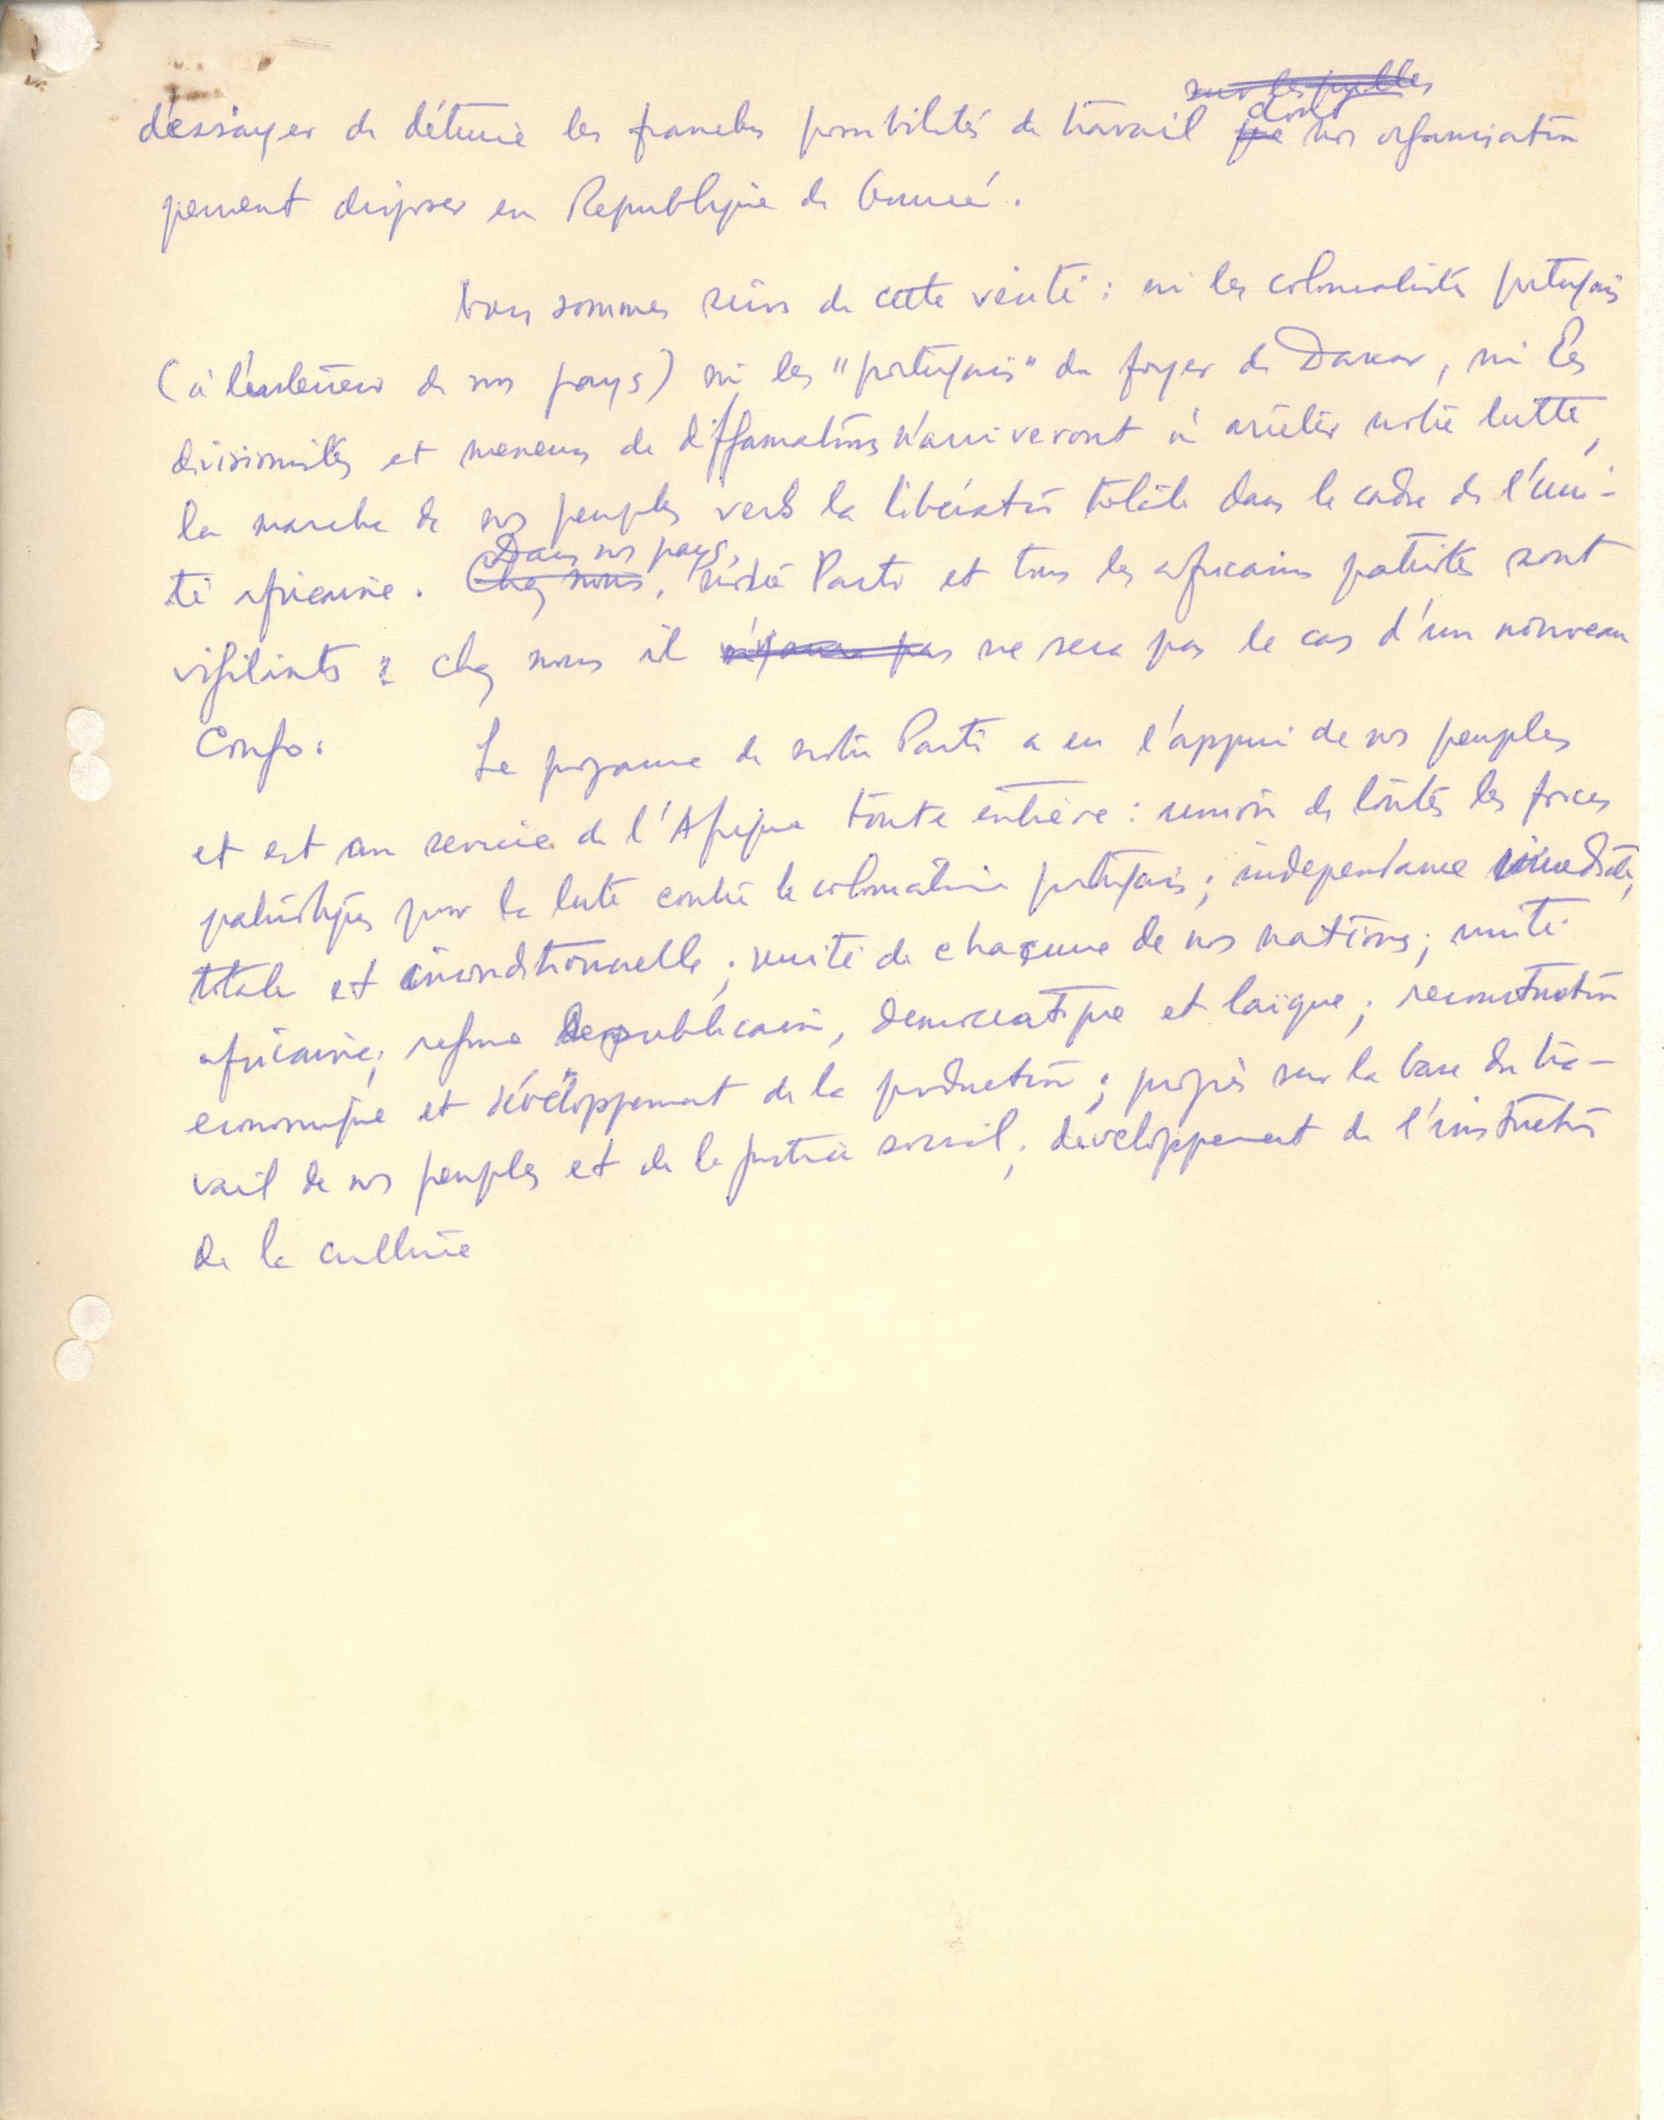 d'essayer de détruire les franches possibilités de travail ~~sur lesquelles~~ ~~que~~ dont nos organisation
peuvent disposer en Republique de Guinée.
Nous sommes sûrs de cette vérité : ni les colonialistes portugais
(à l'extérieur de nos pays) ni les "portugais" du foyer de Dakar, ni les
divisionnistes et meneurs de diffamations n'arriveront à arrêter notre lutte,
la marche de nos peuples vers la libération totale dans le cadre de l'uni-
té africaine. ~~Chez nous,~~ Dans nos pays, notre Parti et tous les africains patriotes sont
vigilants : chez nous il ne sera pas le cas d'un nouveau
Congo.
Le programme de notre Parti a eu l'appui de nos peuples
et est au service de l'Afrique toute entière : union de toutes les forces
patriotiques pour la lutte contre le colonialisme portugais ; independance immediate,
totale et inconditionnelle ; unité de chacune de nos nations ; unité
africaine ; regime republicain, democratique et laïque ; reconstruction
economique et développement de la production ; progrès sur la base du tra-
vail de nos peuples et de la justice social ; développement de l'instruction
de la culture